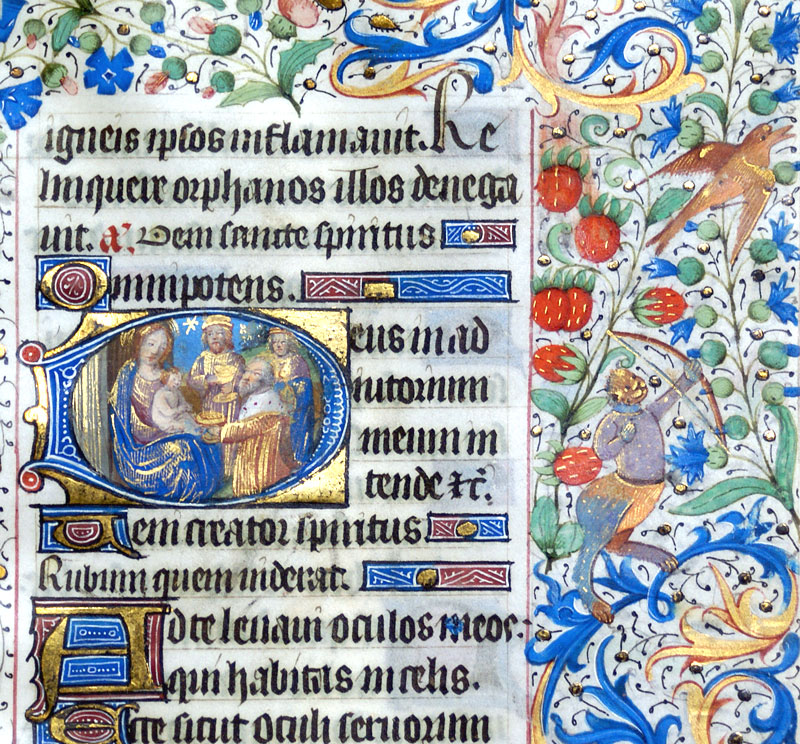 igneis ipsos inflamauit. Re
linqueir orphanos illos denega
uit. a. Vem sancte spiritus
Omnipotens.
Deus in ad
iutorium
meum in
tende &c.
Uem creator spiritus.
Rubum quem viderat.
Ad te leuaui oculos meos.
qui habitas in celis.
Ecce sicut oculi seruorum